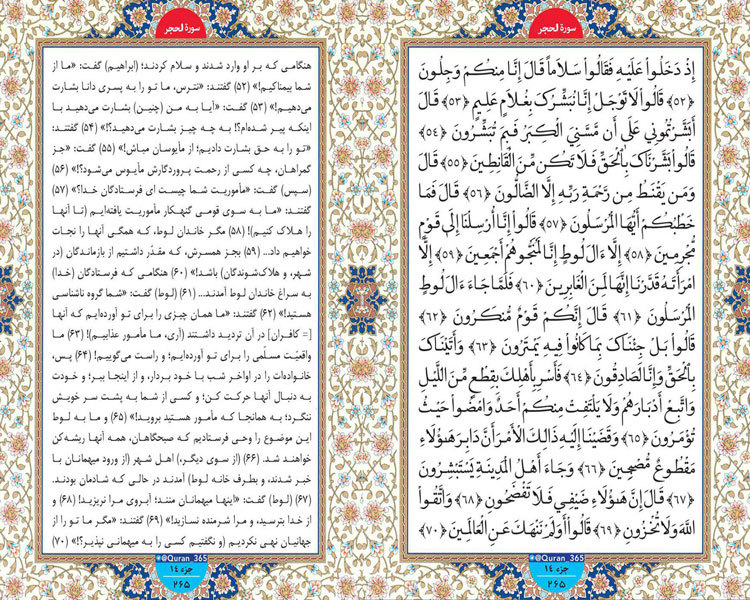 سورة الحجر
إِذْ دَخَلُوا۟ عَلَيْهِ فَقَالُوا۟ سَلَاماً قَالَ إِنَّا مِنكُمْ وَجِلُونَ
﴿٥٢﴾ قَالُوا۟ لَا تَوْجَلْ إِنَّا نُبَشِّرُكَ بِغُلَامٍ عَلِيمٍ ﴿٥٣﴾ قَالَ
أَبَشَّرْتُمُونِي عَلَى أَن مَّسَّنِيَ الْكِبَرُ فَبِمَ تُبَشِّرُونَ ﴿٥٤﴾
قَالُوا۟ بَشَّرْنَاكَ بِالْحَقِّ فَلَا تَكُن مِّنَ الْقَانِطِينَ ﴿٥٥﴾ قَالَ
وَمَن يَقْنَطُ مِن رَّحْمَةِ رَبِّهِ إِلَّا الضَّالُّونَ ﴿٥٦﴾ قَالَ فَمَا
خَطْبُكُمْ أَيُّهَا الْمُرْسَلُونَ ﴿٥٧﴾ قَالُوا۟ إِنَّا أُرْسِلْنَا إِلَى قَوْمٍ
مُّجْرِمِينَ ﴿٥٨﴾ إِلَّا ءَالَ لُوطٍ إِنَّا لَمُنَجُّوهُمْ أَجْمَعِينَ ﴿٥٩﴾ إِلَّا
امْرَأَتَهُ قَدَّرْنَا إِنَّهَا لَمِنَ الْغَابِرِينَ ﴿٦٠﴾ فَلَمَّا جَاءَ ءَالَ لُوطٍ
الْمُرْسَلُونَ ﴿٦١﴾ قَالَ إِنَّكُمْ قَوْمٌ مُّنكَرُونَ ﴿٦٢﴾
قَالُوا۟ بَلْ جِئْنَاكَ بِمَا كَانُوا۟ فِيهِ يَمْتَرُونَ ﴿٦٣﴾ وَأَتَيْنَاكَ
بِالْحَقِّ وَإِنَّا لَصَادِقُونَ ﴿٦٤﴾ فَأَسْرِ بِأَهْلِكَ بِقِطْعٍ مِّنَ اللَّيْلِ
وَاتَّبِعْ أَدْبَارَهُمْ وَلَا يَلْتَفِتْ مِنكُمْ أَحَدٌ وَامْضُوا۟ حَيْثُ
تُؤْمَرُونَ ﴿٦٥﴾ وَقَضَيْنَا إِلَيْهِ ذَالِكَ الْأَمْرَ أَنَّ دَابِرَ هَؤُلَاءِ
مَقْطُوعٌ مُّصْبِحِينَ ﴿٦٦﴾ وَجَاءَ أَهْلُ الْمَدِينَةِ يَسْتَبْشِرُونَ
﴿٦٧﴾ قَالَ إِنَّ هَؤُلَاءِ ضَيْفِي فَلَا تَفْضَحُونِ ﴿٦٨﴾ وَاتَّقُوا۟
اللَّهَ وَلَا تُخْزُونِ ﴿٦٩﴾ قَالُوا۟ أَوَلَمْ نَنْهَكَ عَنِ الْعَالَمِينَ ﴿٧٠﴾
@Quran_365
جزء ١٤
٢٦٥
سورة الحجر
هنگامی که بر او وارد شدند و سلام کردند؛ (ابراهیم) گفت: «ما از
شما بیمناکیم!» (۵۲) گفتند: «نترس، ما تو را به پسری دانا بشارت
می‌دهیم!» (۵۳) گفت: «آیا به من (چنین) بشارت می‌دهید با
اینکه پیر شده‌ام؟! به چه چیز بشارت می‌دهید؟!» (۵۴) گفتند:
«تو را به حق بشارت دادیم؛ از مأیوسان مباش!» (۵۵) گفت: «جز
گمراهان، چه کسی از رحمت پروردگارش مأیوس می‌شود؟!» (۵۶)
(سپس) گفت: «مأموریت شما چیست ای فرستادگان خدا؟» (۵۷)
گفتند: «ما به سوی قومی گنهکار مأموریت یافته‌ایم (تا آنها
را هلاک کنیم)! (۵۸) مگر خاندان لوط، که همگی آنها را نجات
خواهیم داد... (۵۹) بجز همسرش، که مقدّر داشتیم از بازماندگان (در
شهر، و هلاک‌شوندگان) باشد!» (۶۰) هنگامی که فرستادگان (خدا)
به سراغ خاندان لوط آمدند... (۶۱) (لوط) گفت: «شما گروه ناشناسی
هستید!» (۶۲) گفتند: «ما همان چیزی را برای تو آورده‌ایم که آنها
[= کافران] در آن تردید داشتند (آری، ما مأمور عذابیم)! (۶۳) ما
واقعیّت مسلّمی را برای تو آورده‌ایم؛ و راست می‌گوییم! (۶۴) پس،
خانواده‌ات را در اواخر شب با خود بردار، و از اینجا ببر؛ و خودت
به دنبال آنها حرکت کن؛ و کسی از شما به پشت سر خویش
ننگرد؛ و به همانجا که مأمور هستید بروید!» (۶۵) و ما به لوط
این موضوع را وحی فرستادیم که صبحگاهان، همه آنها ریشه‌کن
خواهند شد. (۶۶) (از سوی دیگر،) اهل شهر (از ورود میهمانان با
خبر شدند، و بطرف خانه لوط) آمدند در حالی که شادمان بودند.
(۶۷) (لوط) گفت: «اینها میهمانان منند؛ آبروی مرا نریزید! (۶۸) و
از خدا بترسید، و مرا شرمنده نسازید!» (۶۹) گفتند: «مگر ما تو را از
جهانیان نهی نکردیم (و نگفتیم کسی را به میهمانی نپذیر؟!» (۷۰)
@Quran_365
جزء ١٤
٢٦٥